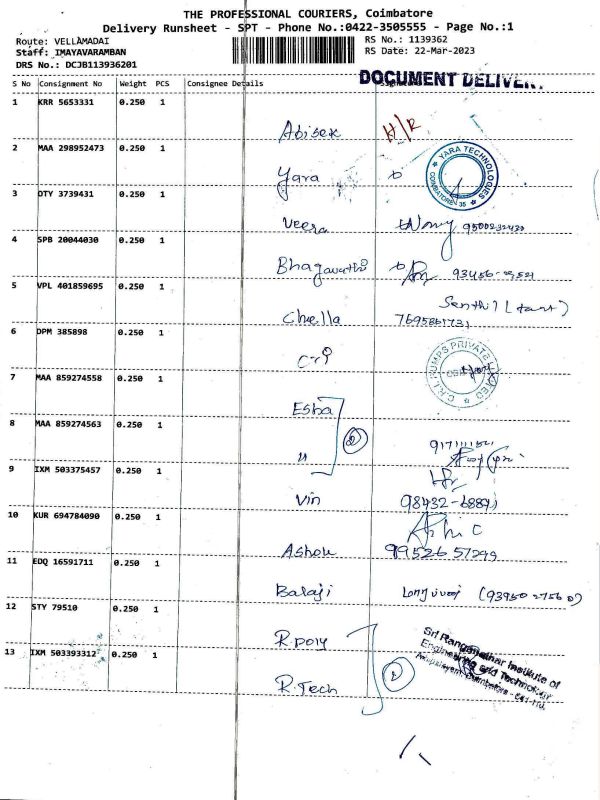 THE PROFESSIONAL COURIERS, Coimbatore
Delivery Runsheet - SPT - Phone No.:0422-3505555 - Page No.:1
Route: VELLAMADAI RS No.: 1139362
Staff: IMAYAVARAMBAN RS Date: 22-Mar-2023
DRS No.: DCJB113936201
DOCUMENT DELIVER
S No Consignment No Weight PCS Consignee Details
1 KRR 5653331 0.250 1
Abisek H/R
2 MAA 298952473 0.250 1
Yara YARA TECHNOLOGIES COIMBATORE 35
3 DTY 3739431 0.250 1
Veera
4 SPB 20044030 0.250 1
Bhagavathi
5 VPL 401859695 0.250 1
Senthil
Chella 7695861731
6 DPM 385898 0.250 1
Cri C.R.I. PUMPS PRIVATE LIMITED
7 MAA 859274558 0.250 1
Esha
8 MAA 859274563 0.250 1
" 2
9 IXM 503375457 0.250 1
Vin 98432-68891
10 KUR 694784090 0.250 1
Ashok 99526 57299
11 EDQ 16591711 0.250 1
Balaji
12 STY 79510 0.250 1
R.Poly
13 IXM 503393312 0.250 1
R.Tech 2
Sri Ranganathar Institute of
Engineering and Technology